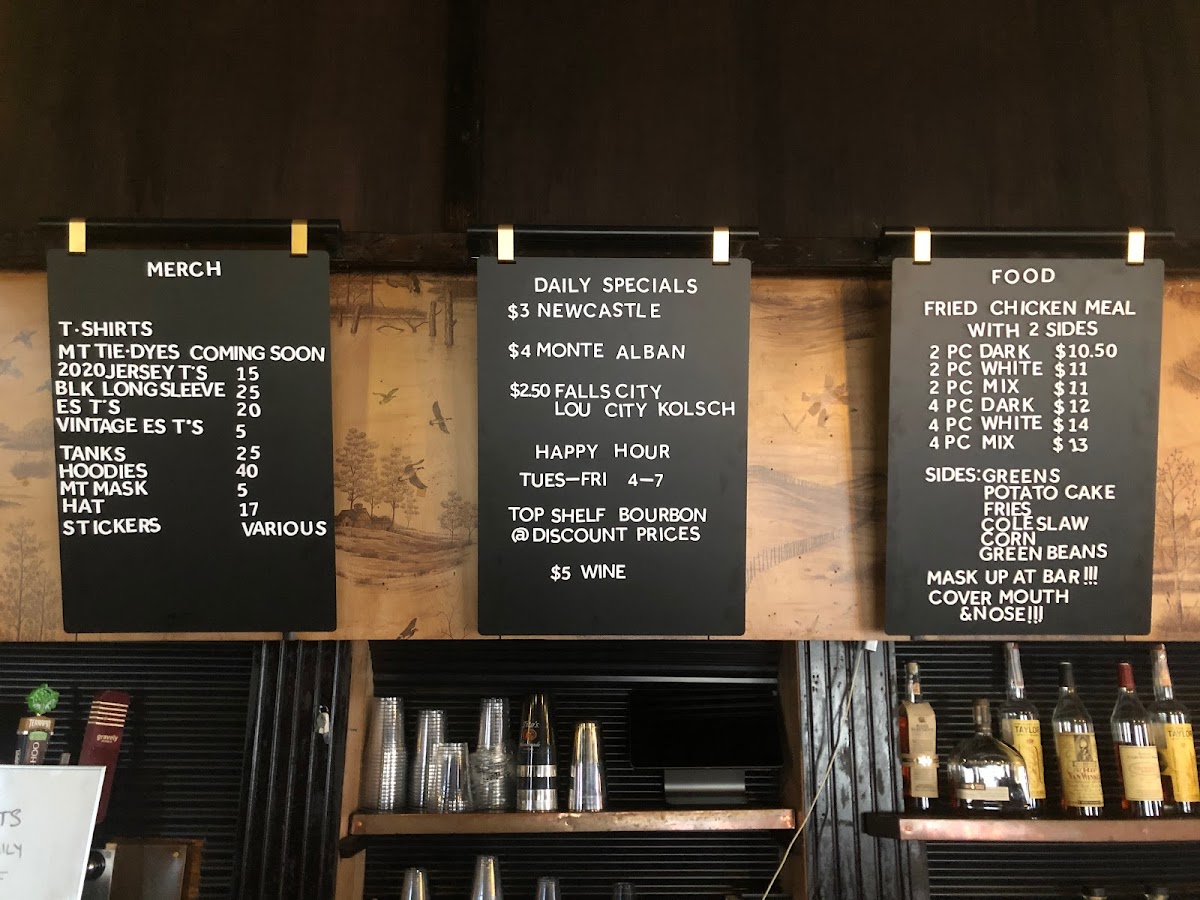 MERCH
T-SHIRTS
MT TIE-DYES COMING SOON
2020 JERSEY T'S 15
BLK LONG SLEEVE 25
ES T'S 20
VINTAGE ES T'S 5
TANKS 25
HOODIES 40
MT MASK 5
HAT 17
STICKERS VARIOUS
DAILY SPECIALS
$3 NEWCASTLE
$4 MONTE ALBAN
$2.50 FALLS CITY
LOU CITY KOLSCH
HAPPY HOUR
TUES-FRI 4-7
TOP SHELF BOURBON
@ DISCOUNT PRICES
$5 WINE
FOOD
FRIED CHICKEN MEAL
WITH 2 SIDES
2 PC DARK $10.50
2 PC WHITE $11
2 PC MIX $11
4 PC DARK $12
4 PC WHITE $14
4 PC MIX $13
SIDES: GREENS
POTATO CAKE
FRIES
COLESLAW
CORN
GREEN BEANS
MASK UP AT BAR!!!
COVER MOUTH
& NOSE!!!
gravely
TAYLOR